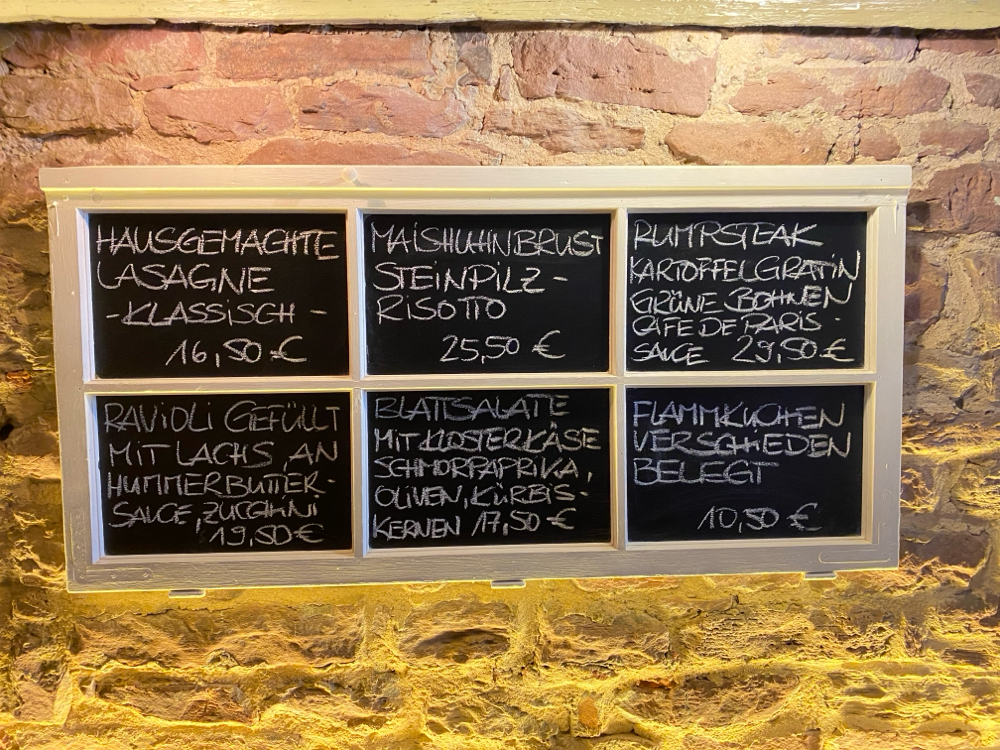 HAUSGEMACHTE
LASAGNE
-KLASSISCH-
16,50 €
MAISHUHNBRUST
STEINPILZ-
RISOTTO
25,50 €
RUMPSTEAK
KARTOFFELGRATIN
GRÜNE BOHNEN
CAFE DE PARIS-
SAUCE 29,50 €
RAVIOLI GEFÜLLT
MIT LACHS, AN
HUMMERBUTTER-
SAUCE, ZUCCHINI
19,50 €
BLATTSALATE
MIT KLOSTERKÄSE
SCHMORPAPRIKA,
OLIVEN, KÜRBIS-
KERNEN 17,50 €
FLAMMKUCHEN
VERSCHIEDEN
BELEGT
10,50 €